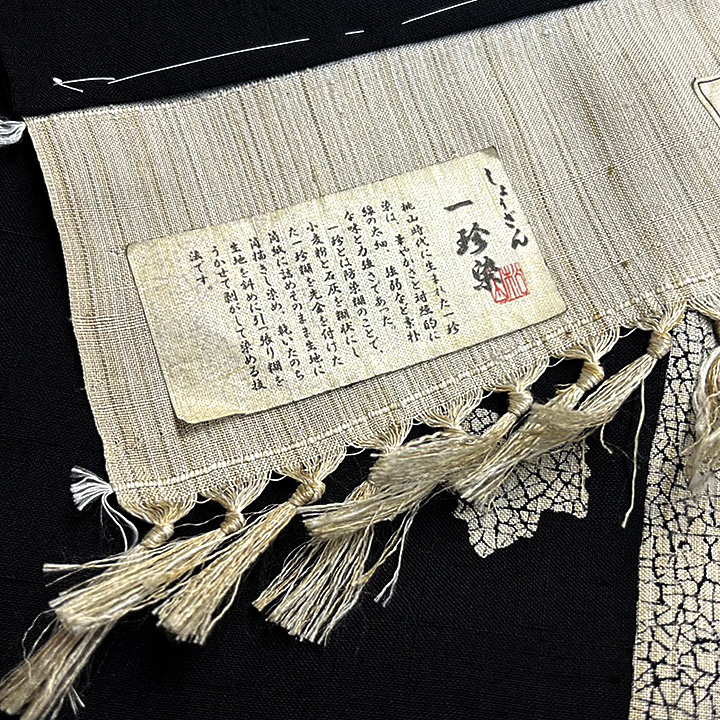 しょうざん
一珍染
桃山時代に生まれた一珍
染は、華やかさと対照的に
線の太細、強弱など素朴
な味と力強さであった。
一珍とは防染糊のことで、
小麦粉と石灰を糊状にし
た一珍糊を先金を付けた
筒紙に詰めそのまま生地に
筒描きし染め、乾いたのち
生地を斜めに引っ張り糊を
うかせて剥がして染める技
法です。